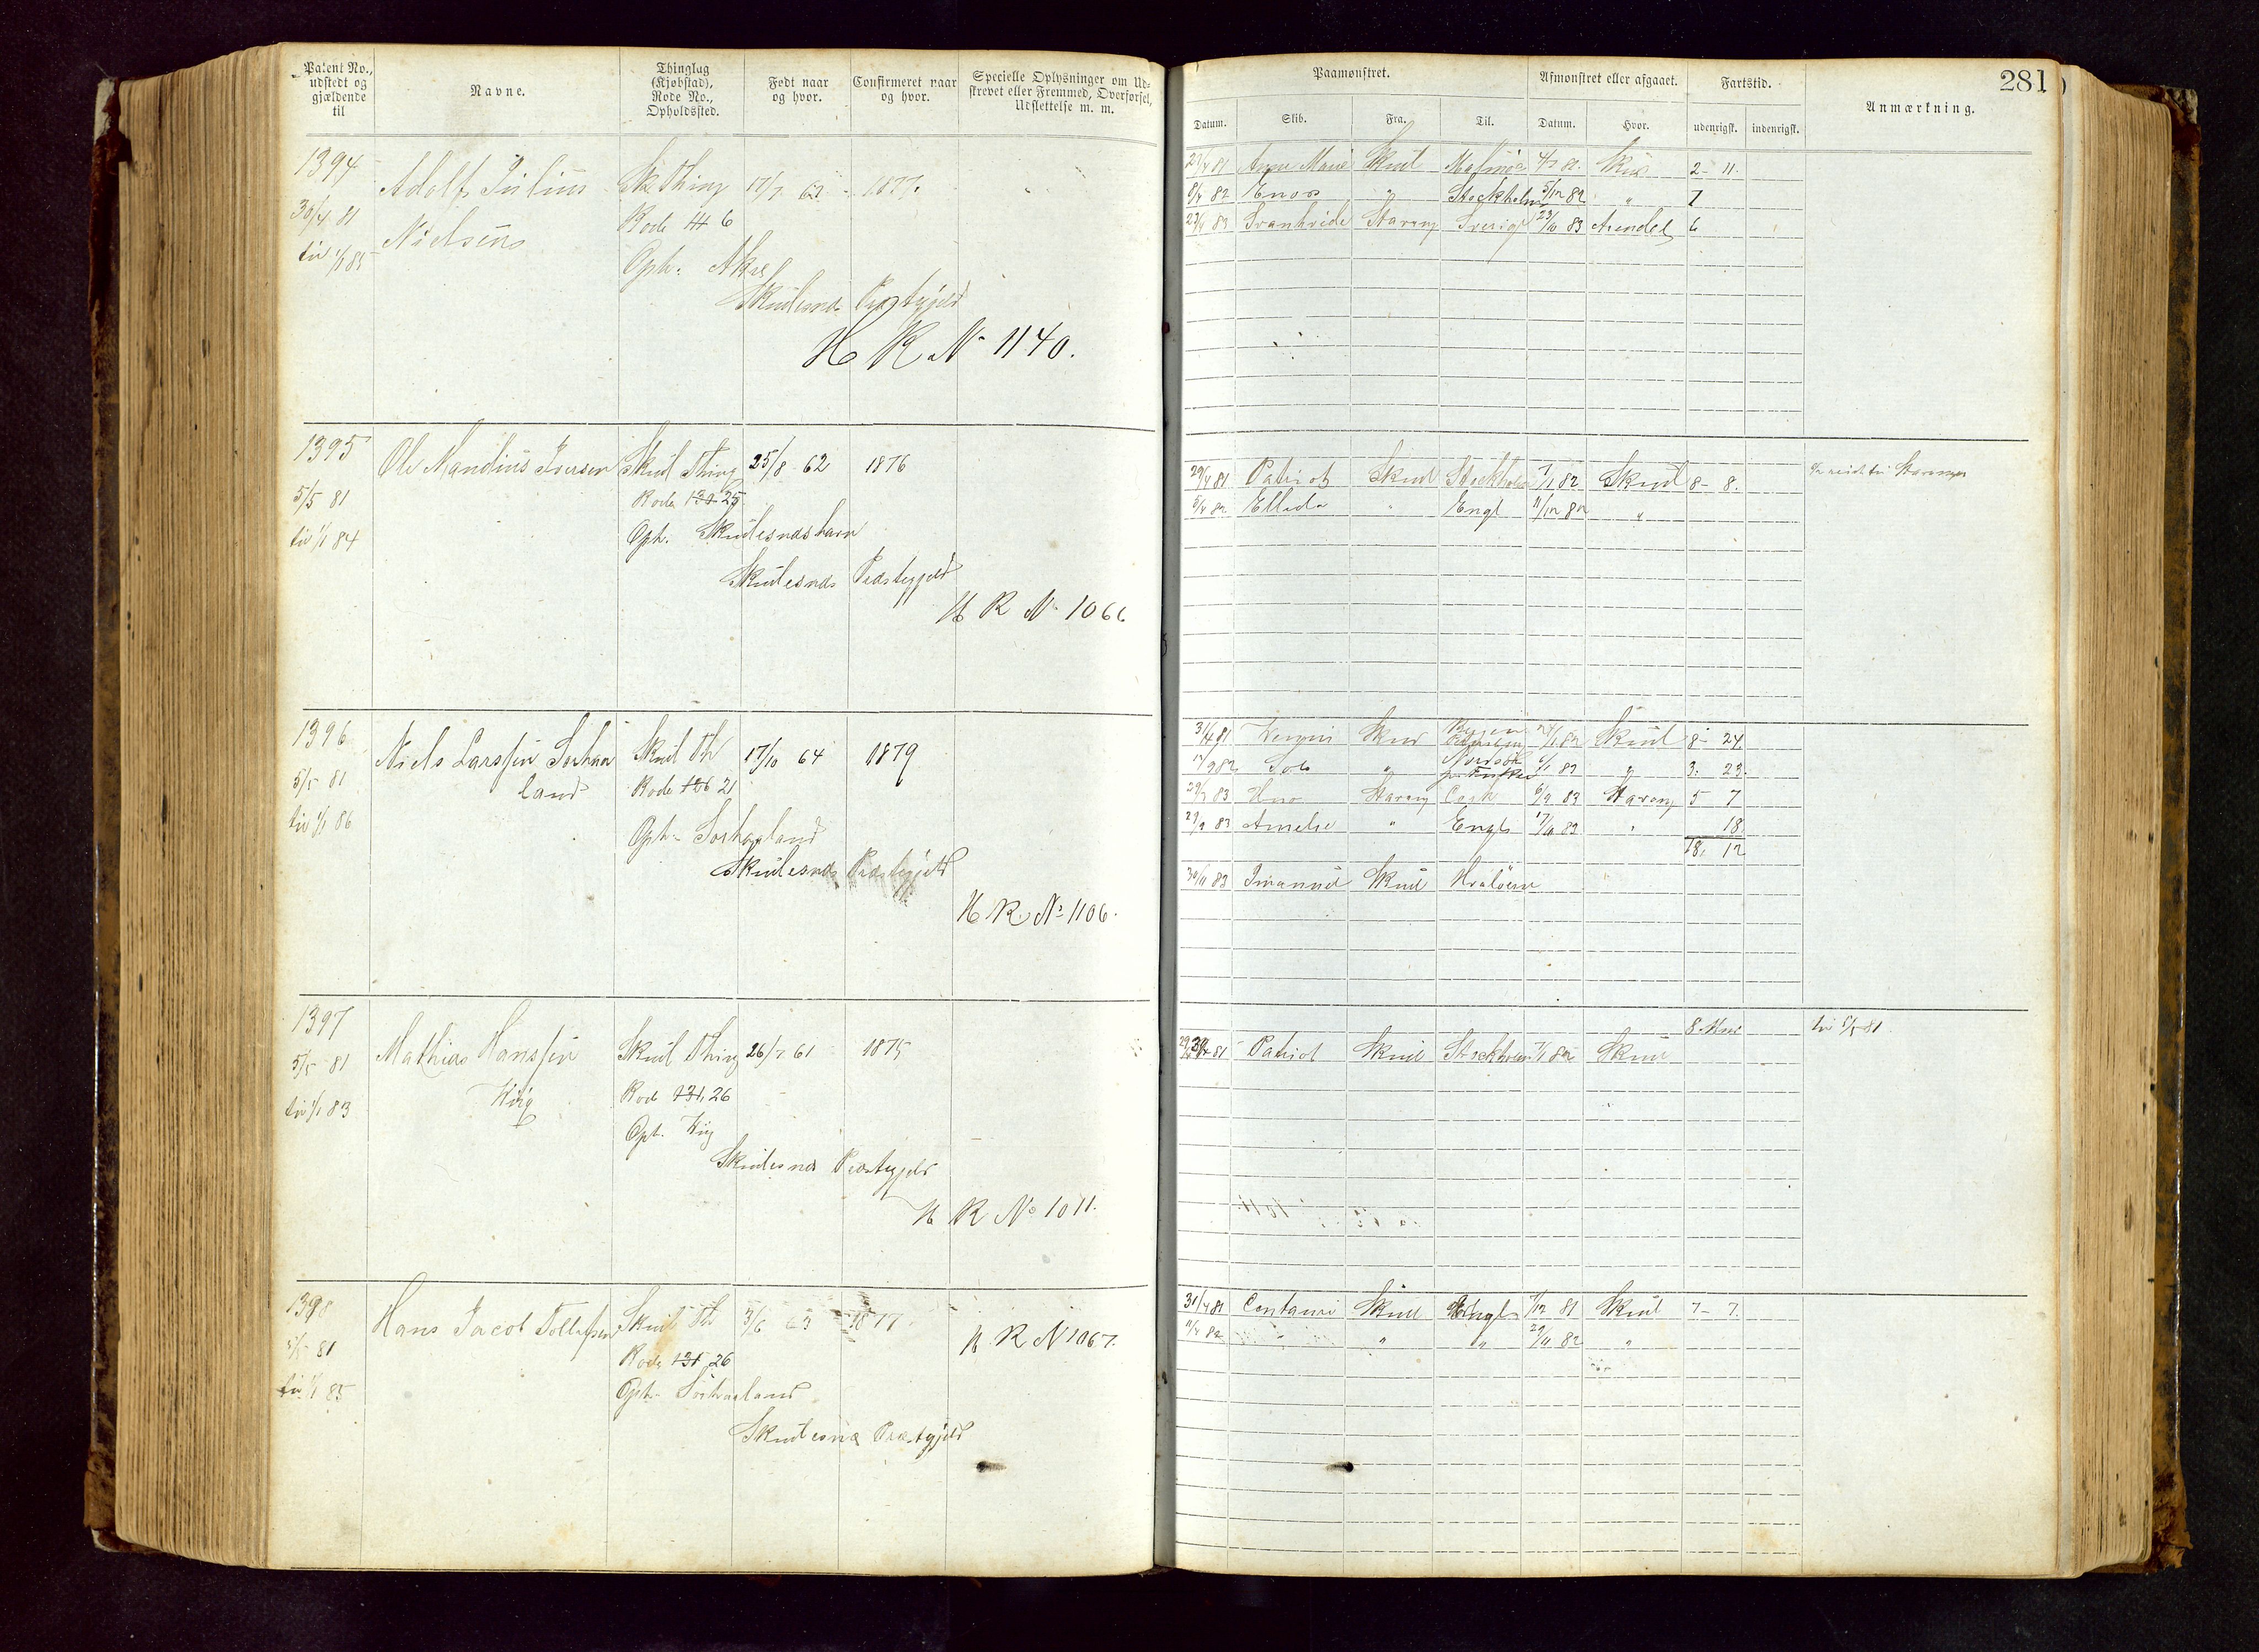 Patent No., udstedt og gjældende til
Navne.
Thinglag (Kjøbstad), Rode No., Opholdssted.
Født naar og hvor.
Confirmeret naar og hvor.
Specielle Oplysninger om Udskrevet eller Fremmed, Overførsel, Udslettelse m. m.
1394
30/4 81
til 1/1 85
Adolf Julius Nielsen
Sk Thing
Rode 14 6
Oph. Akre
Skudesnæs Præstegjeld
17/7 62
1877
H R No 1140.
1395
5/5 81
til 1/1 84
Ole Mandius Iversen
Skud Thing
Rode 130 25
Oph. Skudesnæshavn
Skudesnæs Præstegjeld
25/8 62
1876
H R No 1066
1396
5/5 81
til 1/1 86
Niels Larssen Sørhaaland
Skud Th
Rode 126 21
Oph. Sørhaaland
Skudesnæs Præstegjeld
17/10 64
1879
H R. No 1106.
1397
5/5 81
til 1/1 83
Mathias Hanssen Wiig
Skud Thing
Rode 131, 26
Oph. Wiig
Skudesnæs Præstegjeld
26/7 61
1875
H R No 1011.
1398
5/5 81
til 1/1 85
Hans Jacob Tollefsen
Skud Th
Rode 131, 26
Oph. Sørhaaland
Skudesnæs Præstegjeld
3/6 63
1877.
H. R No 1067.
281
Paamønstret.
Afmønstret eller afgaaet.
Fartstid.
Anmærkning.
Datum. Skib. Fra. Til. Datum. Hvor. udenrigsk. indenrigsk.
Anne Marie Skud Malmø Skud 2 - 11.
8/4 82 Enos " Stockholm 5/12 82 " 7
23/4 83 Svanhvide Stavang Sverig 23/10 83 Arendal 6
29/4 81 Patriot Skud Stockholm 7/1 82 Skud 8 - 8.
Stavanger
5/4 82 Ellida " Engl 11/12 82 "
Skud Skud 8 - 24
" 3. 23.
Stavang Cork 6/9 83 Stavang 5 7
29/9 83 Amelie " Engl " 18
18. 12
30/11 83 Imanuel Skud Hvaløerne
8 Mdr
til 5/5 81.
81 Patriot Skud Stockholm 7/1 82 Skud
31/4 81 Centauri Skud Engl 1/12 81 Skud 7 - 7.
11/4 82 " " 29/11 82 "